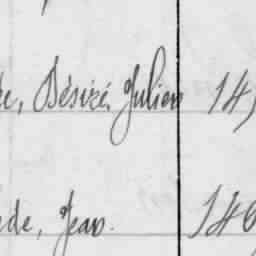 Désiré, Julien 14
Jean. 146